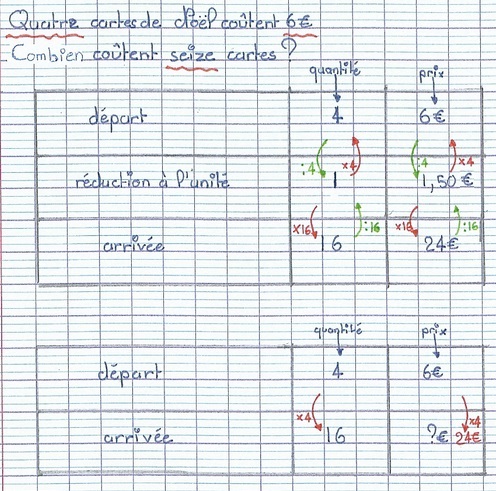 Quatre cartes de Noël coûtent 6€
Combien coûtent seize cartes ?
quantité prix
départ 4 6€
:4 x4 :4 x4
réduction à l'unité 1 1,50€
x16 :16 x16 :16
arrivée 16 24€
quantité prix
départ 4 6€
x4 x4
arrivée 16 ?€ 24€